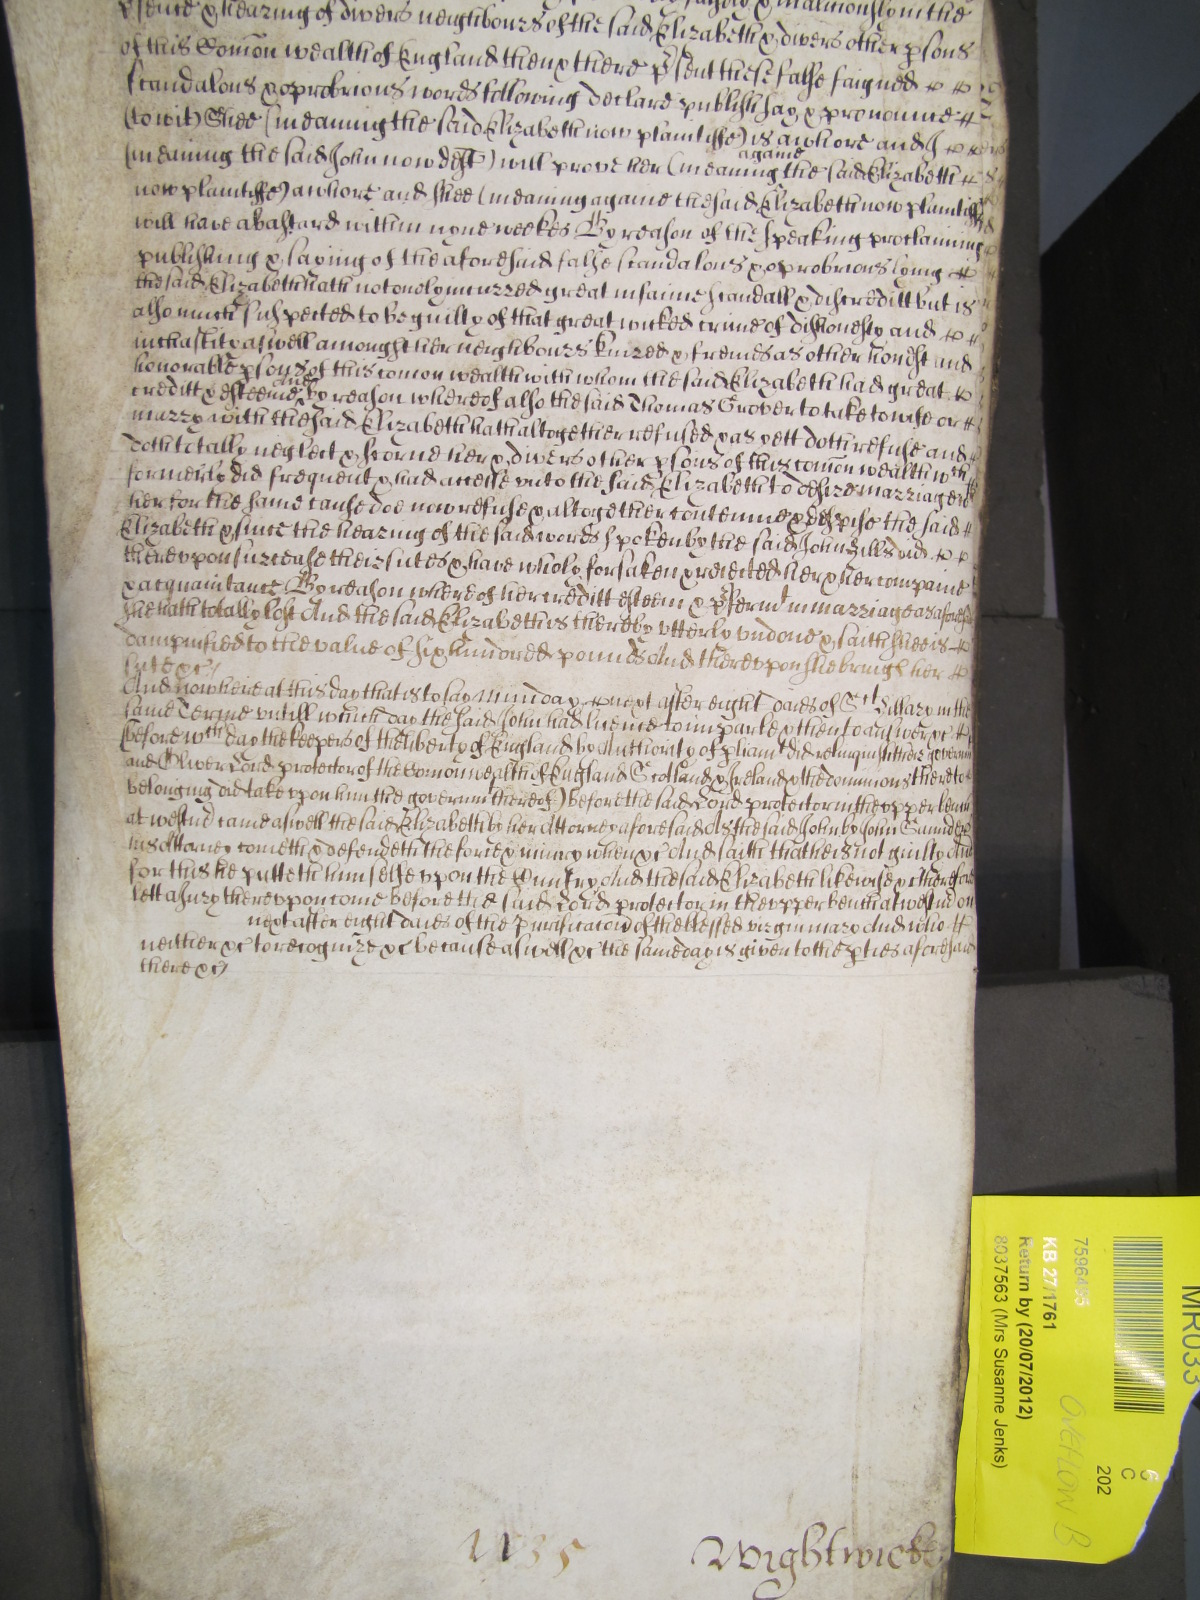 psence & hearing of divers neighbours of the said Elizabeth & divers other psons
of this Comon wealth of England then & there psent these false faigned
scandalous & oprobrious words following declare publish say & pronounce
(to wit) Shee (meaning the said Elizabeth now plaintiffe) is a whore and I
(meaning the said John now deft) will prove her (meaning againe the said Elizabeth
now plaintiffe) a whore and shee (meaning againe the said Elizabeth now plaintiff
will have a bastard within none weekes By reason of the speaking proclaiming
publishing & saying of the aforesaid false scandalous & oprobrious lying
the said Elizabeth hath not onely incurred great infamie scandall & discreditt but is
also much suspected to be guilty of that great wicked crime of dishonesty and
inchastity aswell amongst her neighbours kinred & freinds as other honest and
honorable psons of this comon wealth with whom the said Elizabeth had great
creditt & esteeme and By reason whereof also the said Thomas Grover to take to wife or
marry with the said Elizabeth hath altogether refused & as yett doth refuse and
doth totally neglect & scorne her & divers other psons of this comon wealth wch
formerly did frequent & had accesse unto the said Elizabeth to desire marriage
her for the same cause doe now refuse & altogether contemne & despise the said
Elizabeth & since the hearing of the said words spoken by the said John did
thereupon surcease their suites & have wholy forsaken & reiected her & her companie
& acquaintance By reason whereof her creditt esteem & pfermt in marriage as aforesd
she hath totally lost And the said Elizabeth is thereby utterly undone & saith shee is
dampnified to the value of six hundred pounds And thereupon she bringes her
sute &c
And now here at this day that is to say Munday next after eight daies of St Hillary in the
same Terme untill which day the said John had licence to imparle & then to answer &c
(before wch day the keepers of the liberty of England by Authority of pliamt did relinquish there governm
and Oliver Lord protector of the Comon wealth of England Scotland & Ireland & the dominions thereto
belonging did take upon him the governmt thereof) before the said Lord protector in the upper bench
at westmr came aswell the said Elizabeth by her Attorney aforesaid As the said John by John
his Attorney cometh & defendeth the force & iniury when &c And saith that he is not guilty And
for this he putteth himselfe upon the Cuntry And the said Elizabeth likewise &c therefore
lett a Jury thereupon come before the said Lord protector in the upper bench at westmr on
next after eight daies of the Purificacon of the blessed virgin mary And who
neither &c to recognize &c because aswell &c the same day is given to the pties aforesaid
there &c
1135
Wightwicke
MR033
7596495
KB 27/1761
Return by (20/07/2012)
8037563 (Mrs Susanne Jenks)
OVEFLOW B
G
C
202